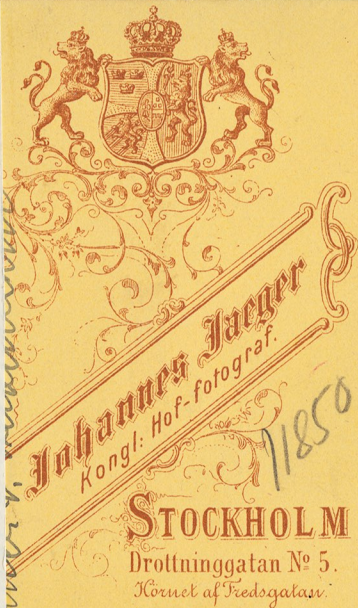 Johannes Jaeger
Kongl: Hof-fotograf.
71850
STOCKHOLM
Drottninggatan No 5.
Hörnet af Fredsgatan.